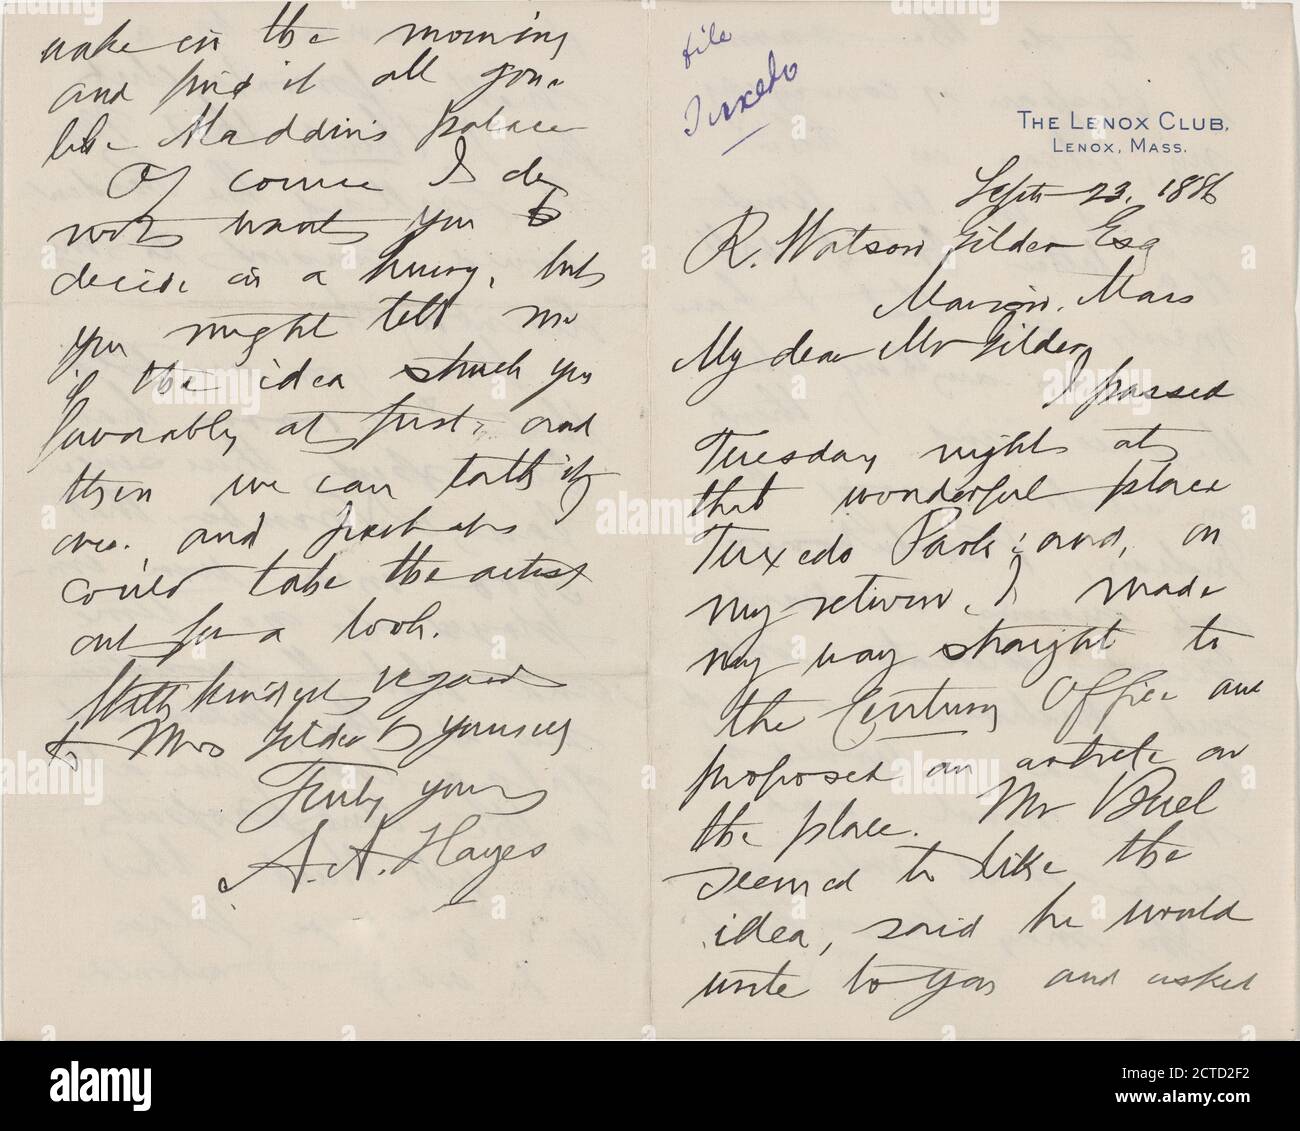 file
Tuxedo
THE LENOX CLUB,
LENOX, MASS.
Sept 23, 1886
R. Watson Gilder Esq
Marion, Mass
My dear Mr Gilder,
I passed
Tuesday night at
that wonderful place
Tuxedo Park; and, on
my return, I made
my way straight to
the Century Office and
proposed an article on
the place. Mr Buel
seemed to like the
idea, said he would
write to you and asked
wake in the morning
and find it all gone
like Aladdin's palace
Of course I do
not want you to
decide in a hurry, but
you might tell me
if the idea struck you
favorably at first, and
then we can talk it
over and perhaps
could take the artist
out for a look.
With kindest regards
to Mrs Gilder & yourself
Truly yours
A. A. Hayes
alamy
Image ID: 2CTD2F2
www.alamy.com